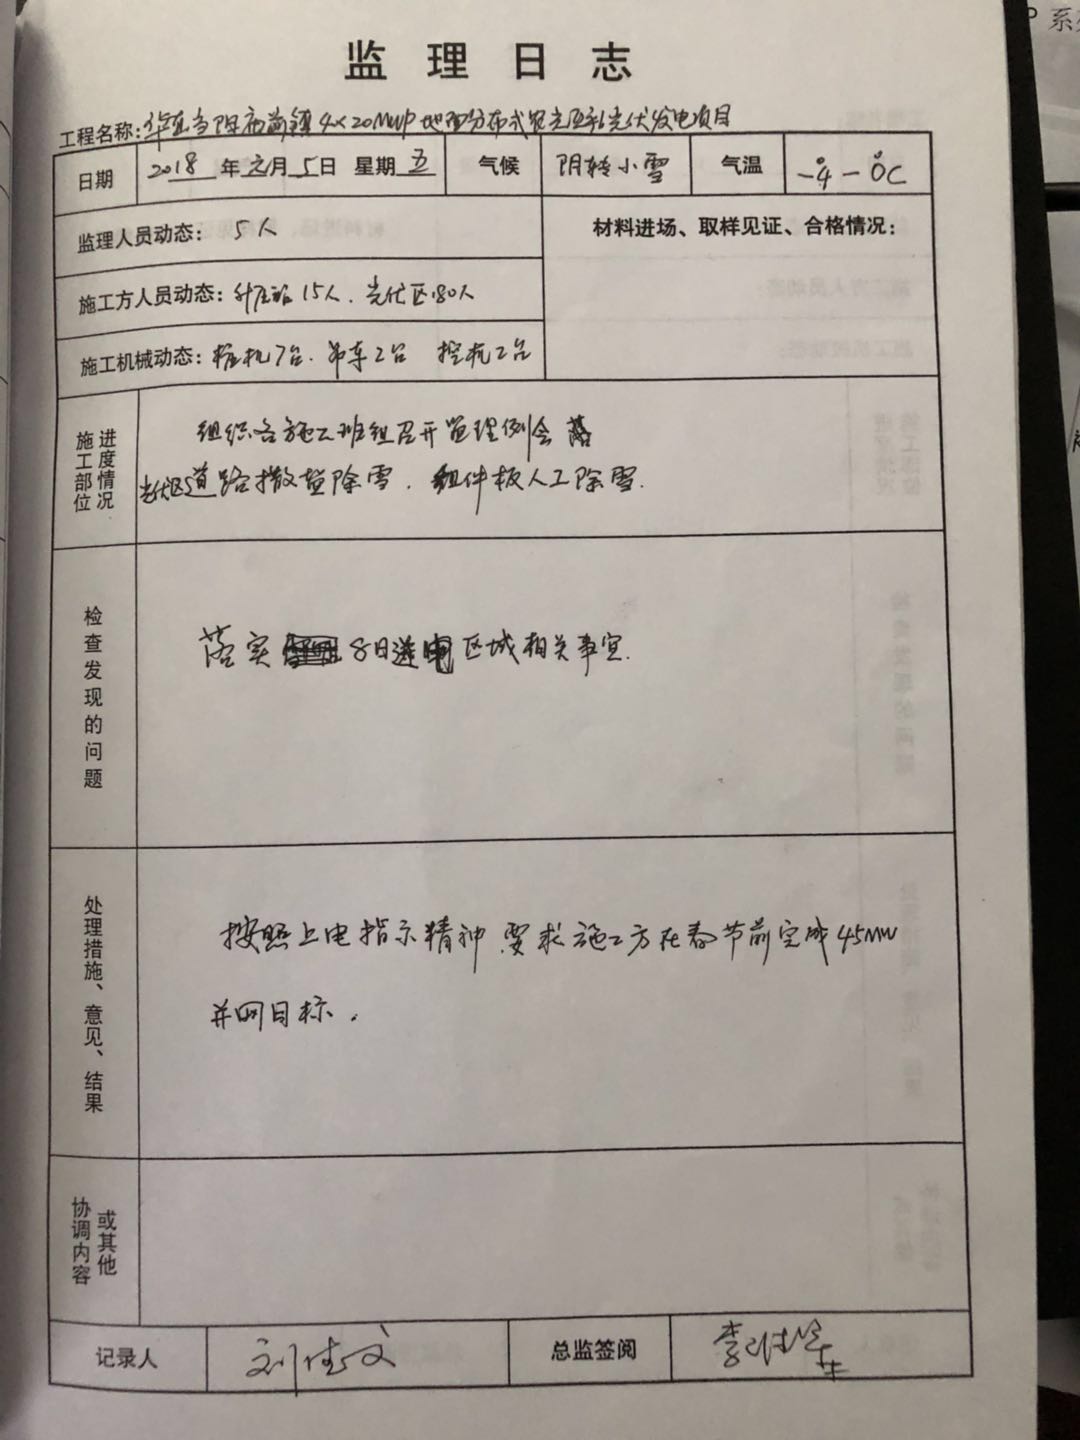 监 理 日 志
工程名称: 华电当阳 镇4×20MWP地面分布式 光伏发电项目
日期 2018 年 元 月 5 日 星期 五 气候 阴转小雪 气温 -4-0C
监理人员动态: 5人
材料进场、取样见证、合格情况:
施工方人员动态: 升压站15人. 光伏区180人
施工机械动态: 桩机7台. 吊车2台 挖机2台
施工部位进度情况
组织各施工班组召开监理例会
光伏区道路撒盐除雪. 组件板人工除雪.
检查发现的问题
落实 8日送电区域相关事宜.
处理措施、意见、结果
按照上电指示精神 要求施工方在春节前完成45MW
并网目标.
协调内容或其他
记录人 总监签阅 李